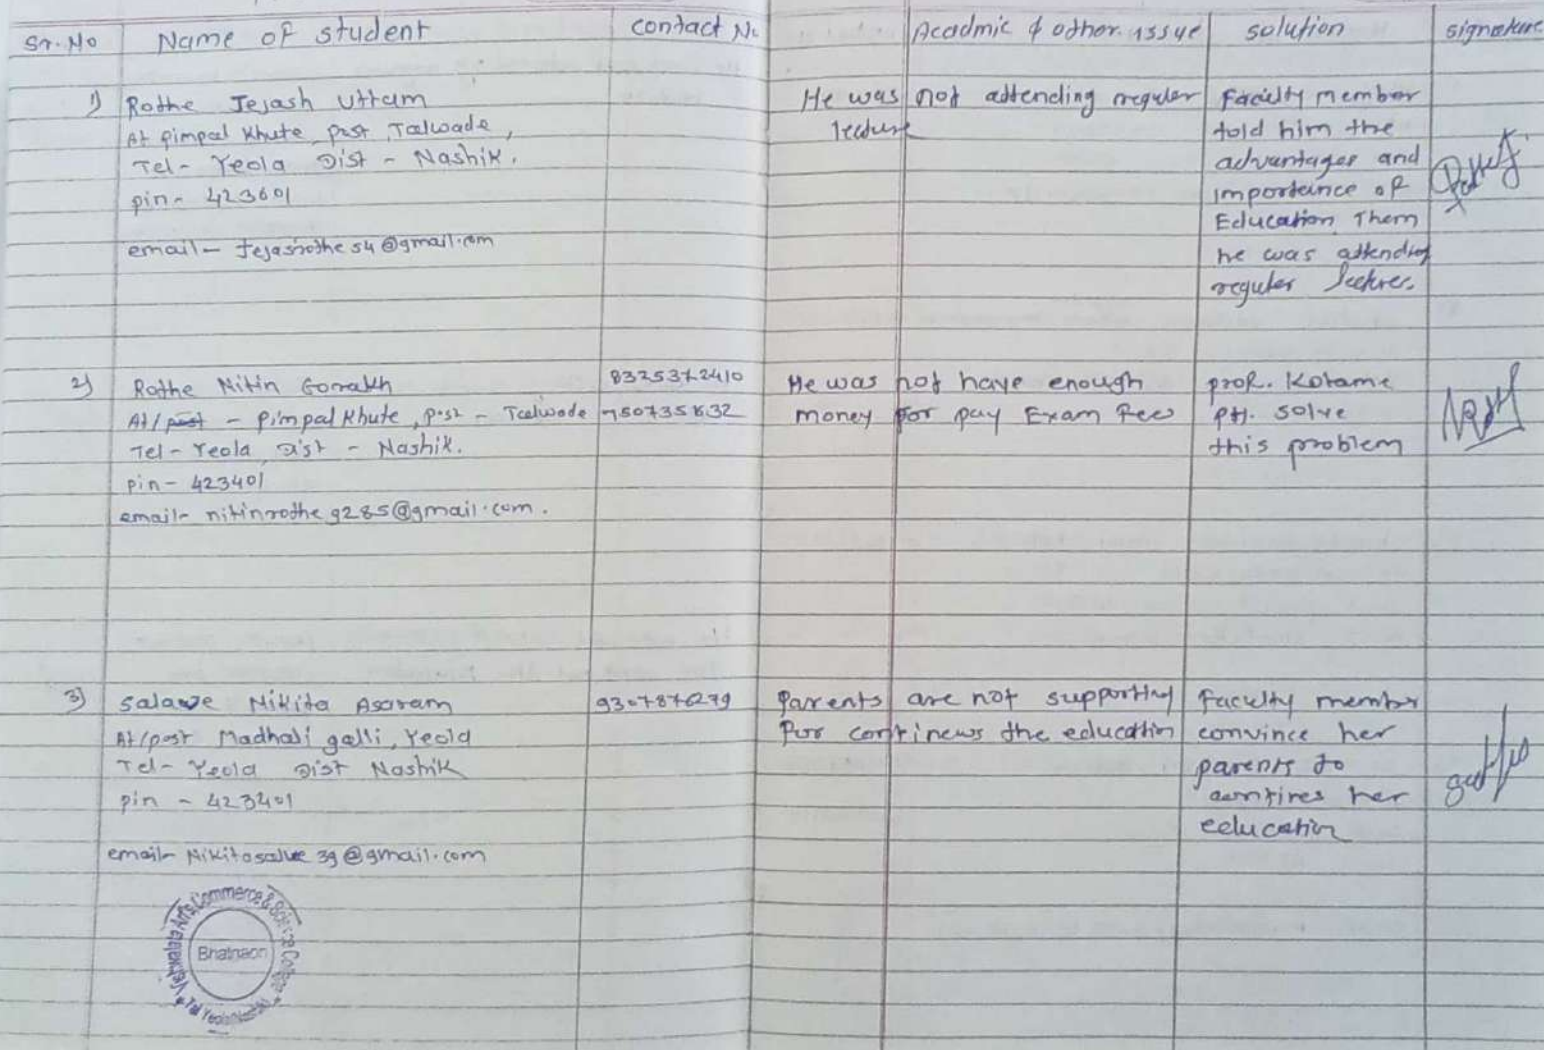 Sr. No Name of student contact No Acadmic & other issue solution signature
1) Rothe Tejash Uttam
At pimpal khute, post Talwade,
Tel- Yeola Dist - Nashik.
pin- 423601
email- tejasrothe54@gmail.com
He was not attending reguler
lecture
Faculty member
told him the
advantages and
importance of
Education Them
he was attending
reguler lectures.
2) Rothe Nitin Gorakh
At/post - Pimpal khute, post - Talwade
Tel- Yeola Dist - Nashik.
pin- 423401
email- nitinrothe9285@gmail.com.
He was not have enough
money for pay Exam fees
prof. Kotame
P.H. solve
this problem
3) Salave Nikita Asaram
At/post Madhali galli, Yeola
Tel- Yeola Dist Nashik
pin - 423401
email- Nikitasalve39@gmail.com
Parents are not supporting
for continews the education
faculty member
convince her
parents to
contires her
education
Arts Commerce & Science College
Bhatgaon
Tal Yeola